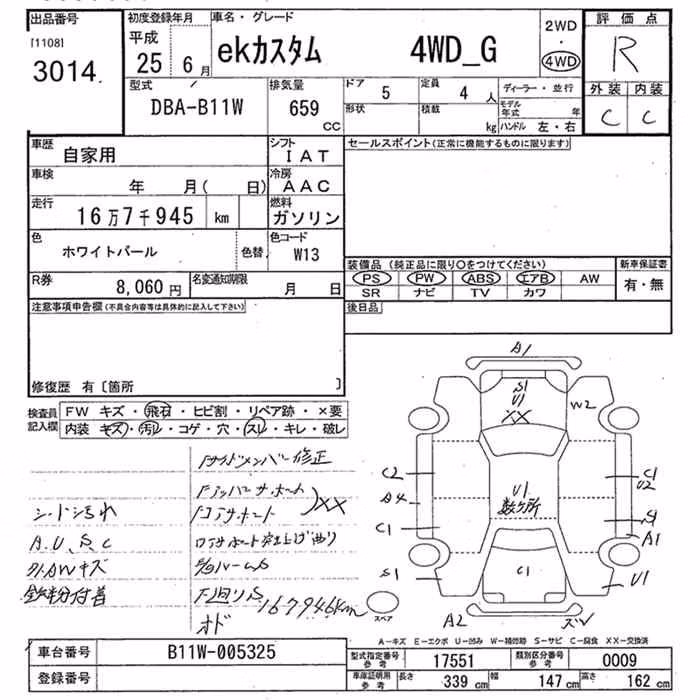 出品番号
[1108]
3014
初度登録年月
平成
25 6月
車名・グレード
ekカスタム 4WD_G
2WD
・
4WD
評価点
R
外装 内装
C C
型式
DBA-B11W
排気量
659
CC
ドア 5
定員 4人
ディーラー・並行
形状
積載 kg
モデル年式 年
ハンドル 左・右
車歴 自家用
シフト IAT
セールスポイント(正常に機能するものに限ります)
車検 年 月( 日)
冷房 AAC
走行 16万7千945 km
燃料 ガソリン
色 ホワイトパール
色替
色コード W13
装備品 (純正品に限り○をつけてください)
新車保証書
PS PW ABS エアB AW
有・無
SR ナビ TV カワ
R券 8,060円
名変通知期限 月 日
後日品
注意事項申告欄(不具合内容等は具体的に記入して下さい)
修復歴 有〔箇所 〕
検査員
記入欄
FW キズ・飛石・ヒビ割・リペア跡・×要
内装 キズ・汚レ・コゲ・穴・スレ・キレ・破レ
Fサイドメンバー修正
Fアッパーサポート
シート汚れ
Fコアサポート
XX
A.U.S.C
ロアサポート突上げ曲り
外AWキズ
鉄粉付着
F廻りS
オド
167946km
A1
S1
U1
XX
W2
C2
A4
C1
S1
U1
数ヶ所
C1
U2
S1
A1
C1
U1
スペア
A2
ズV
A-キズ E-エクボ U-凹み W-補修跡 S-サビ C-腐食 XX-交換済
車台番号 B11W-005325
登録番号
型式指定番号 参考 17551
類別区分番号 参考 0009
車庫証明用 参考
長さ 339 cm
幅 147 cm
高さ 162 cm